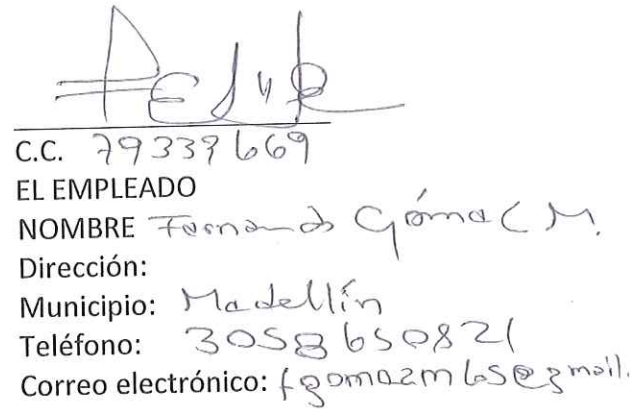 C.C. 79339669
EL EMPLEADO
NOMBRE Fernando Gómez M.
Dirección:
Municipio: Medellín
Teléfono: 3058650821
Correo electrónico: fgomezm65@gmail.